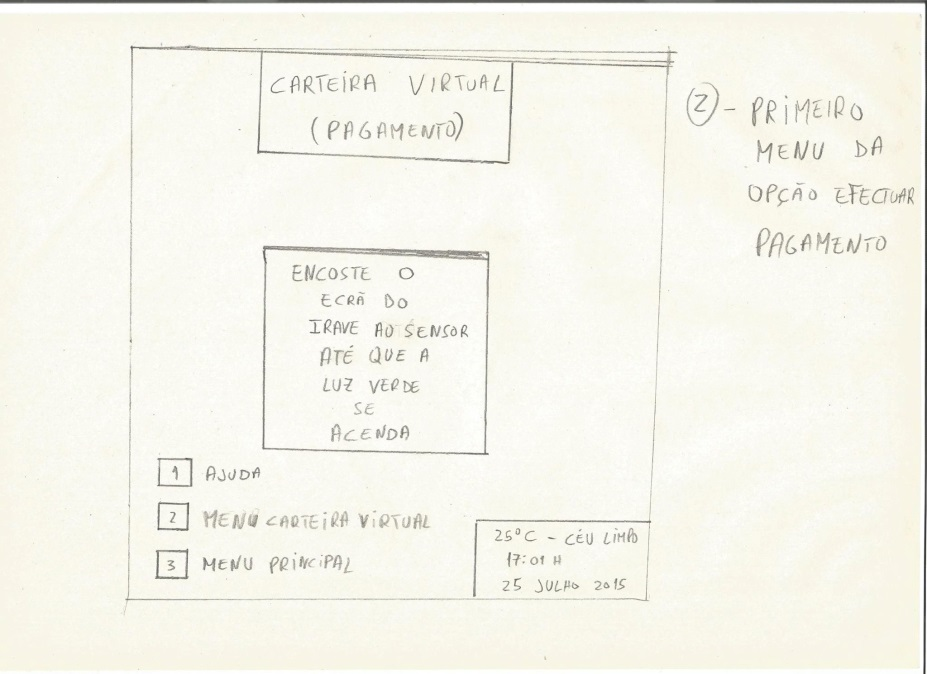 CARTEIRA VIRTUAL
(PAGAMENTO)
ENCOSTE O
ECRÃ DO
IRAVE AO SENSOR
ATÉ QUE A
LUZ VERDE
SE
ACENDA
1 AJUDA
2 MENU CARTEIRA VIRTUAL
3 MENU PRINCIPAL
25°C - CÉU LIMPO
17:01 H
25 JULHO 2015
2 - PRIMEIRO
MENU DA
OPÇÃO EFECTUAR
PAGAMENTO